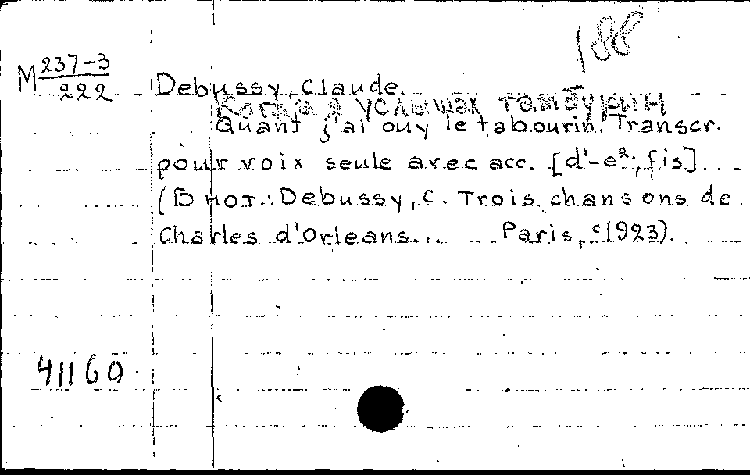 188
M 237-3
222
Debussy, Claude.
Когда я услышал тамбурин
Quant j'ai ouy le tabourin. Transcr.
pour voix seule avec acc. [d'-e²; fis]
(В нот.: Debussy, C. Trois chansons de
Charles d'Orleans... Paris, c1923).
41160